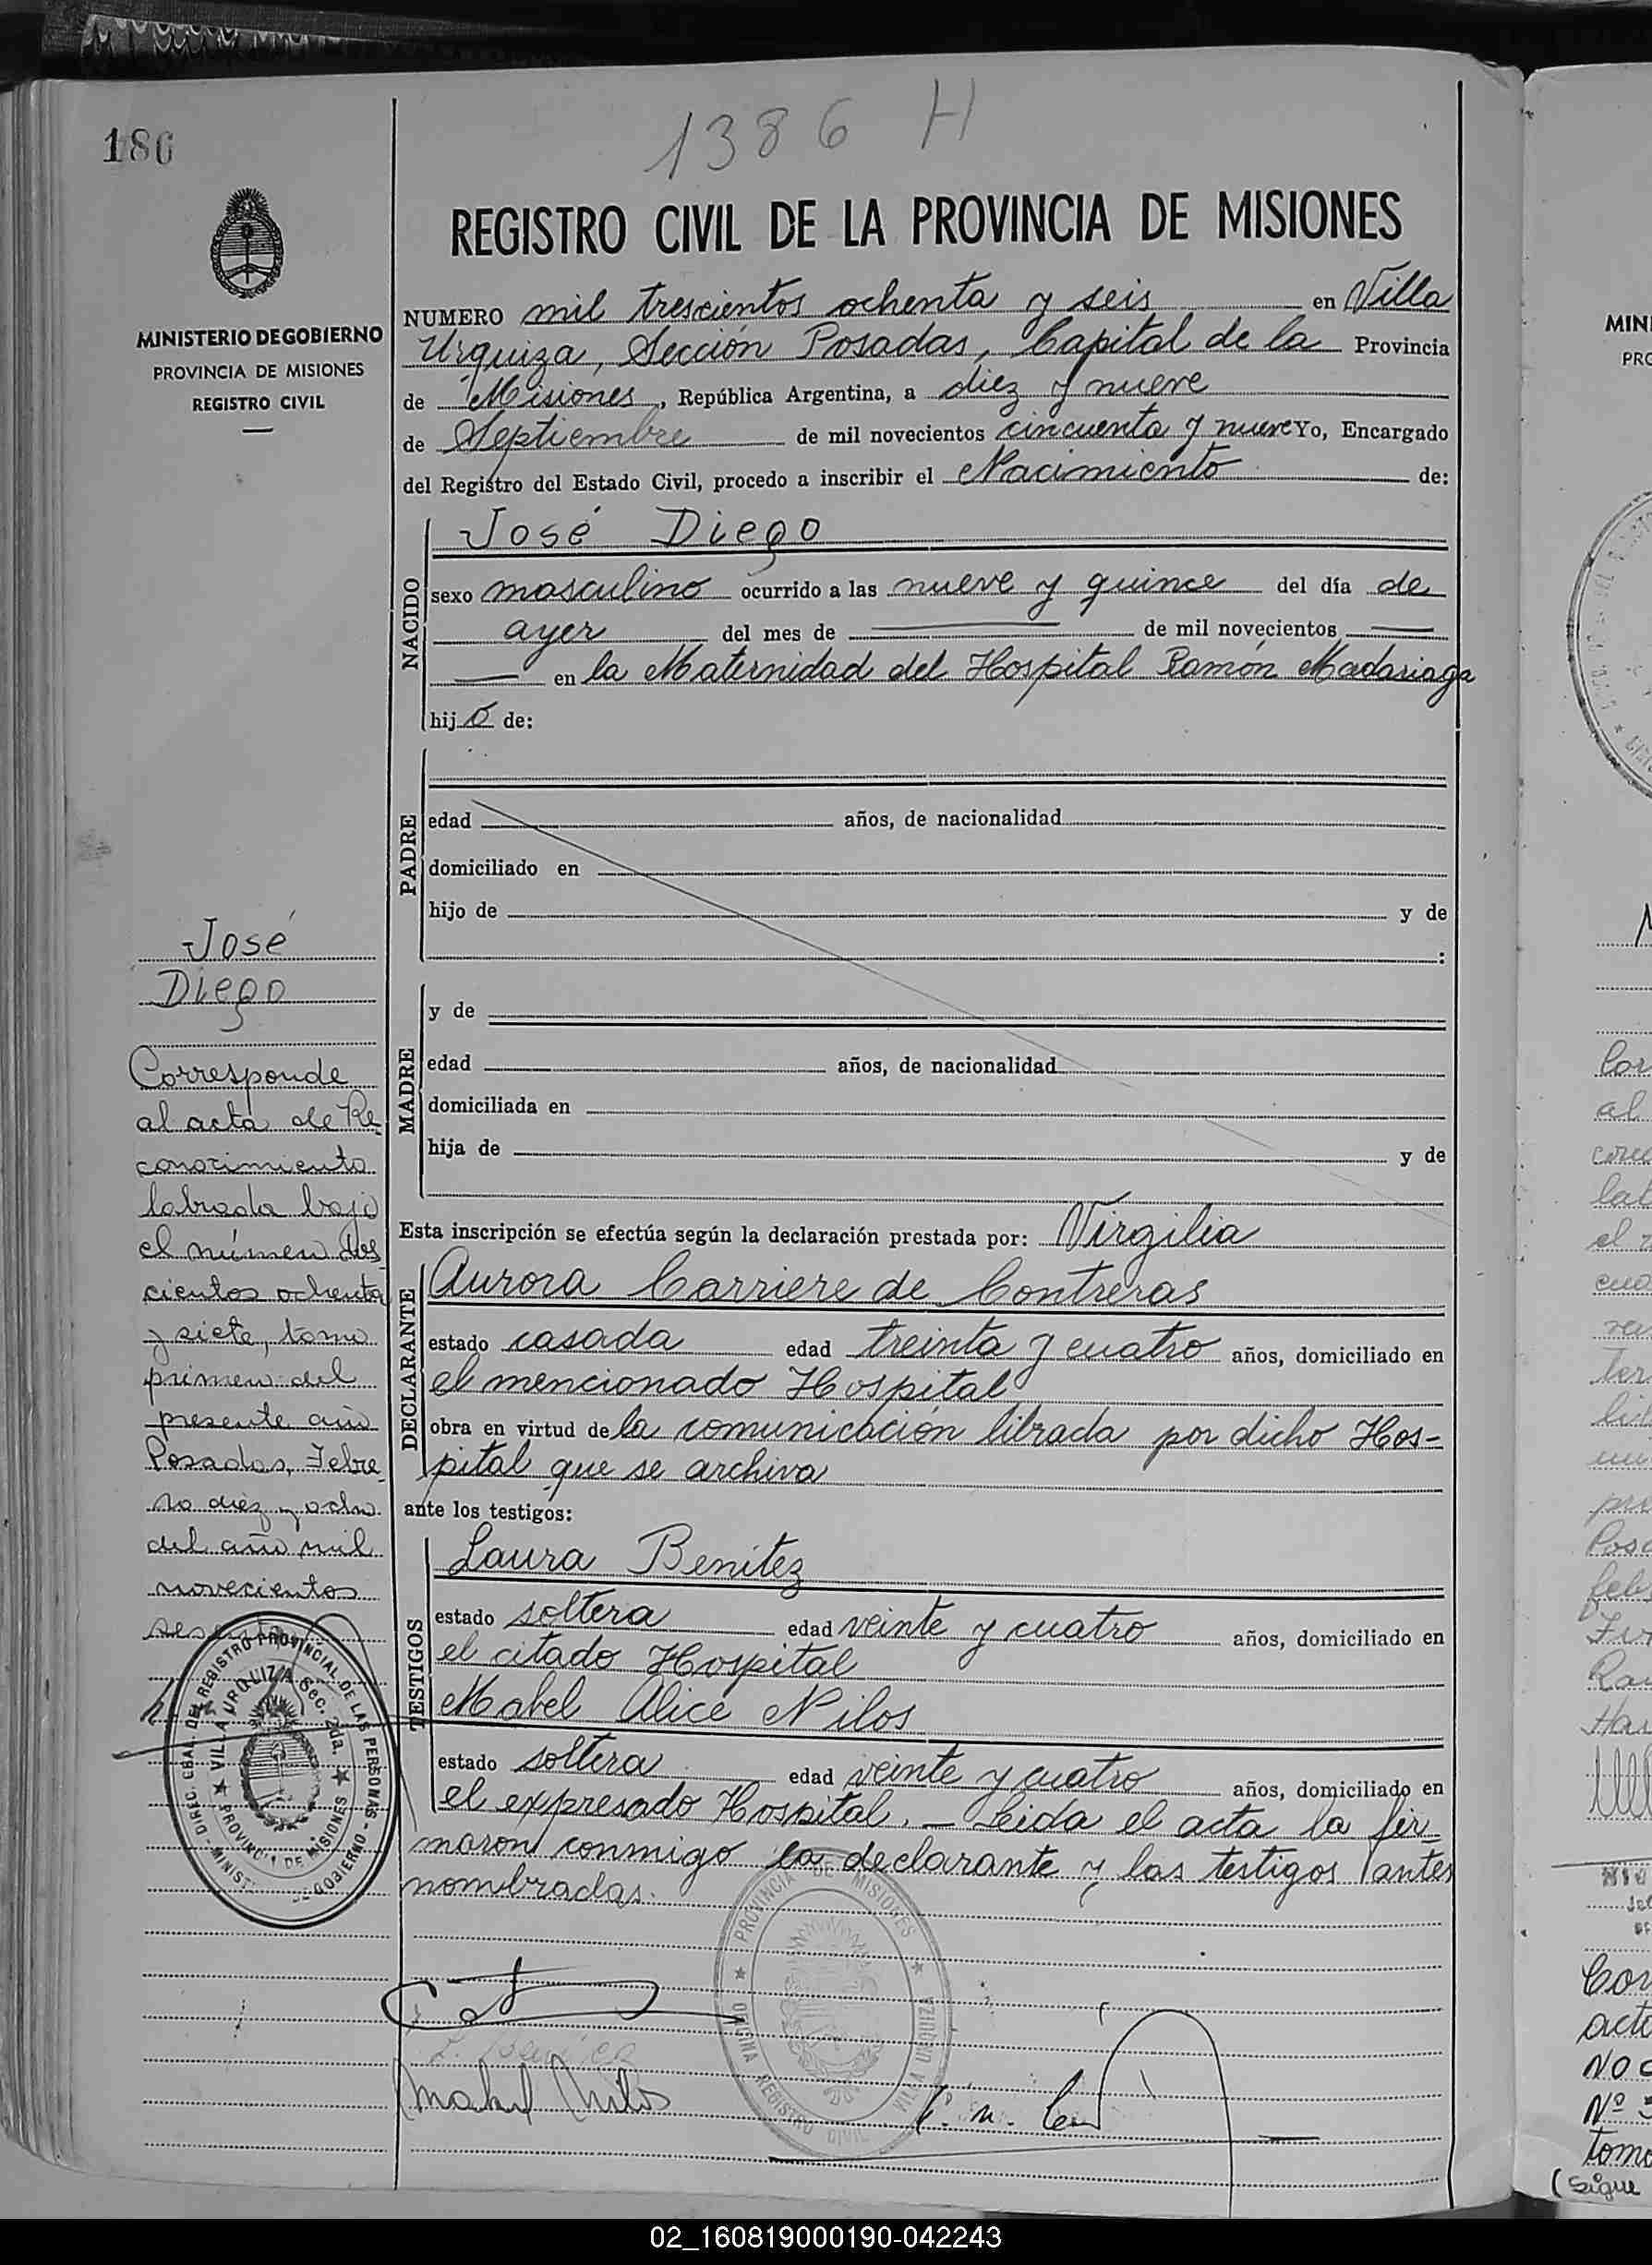 186
1386 H
MINISTERIO DE GOBIERNO
PROVINCIA DE MISIONES
REGISTRO CIVIL
REGISTRO CIVIL DE LA PROVINCIA DE MISIONES
NUMERO mil trescientos ochenta y seis en Villa
Urquiza, Sección Posadas, Capital de la Provincia
de Misiones, República Argentina, a diez y nueve
de Septiembre de mil novecientos cincuenta y nueve Yo, Encargado
del Registro del Estado Civil, procedo a inscribir el Nacimiento de:
NACIDO
José Diego
sexo masculino ocurrido a las nueve y quince del día de
ayer del mes de de mil novecientos
en la Maternidad del Hospital Ramón Madariaga
hijo de:
PADRE
edad años, de nacionalidad
domiciliado en
hijo de y de
:
MADRE
y de
edad años, de nacionalidad
domiciliada en
hija de y de
Esta inscripción se efectúa según la declaración prestada por: Virgilia
DECLARANTE
Aurora Carriere de Contreras
estado casada edad treinta y cuatro años, domiciliado en
el mencionado Hospital
obra en virtud de la comunicación librada por dicho Hos-
pital que se archiva
ante los testigos:
TESTIGOS
Laura Benitez
estado soltera edad veinte y cuatro años, domiciliado en
el citado Hospital
Mabel Alice Nilos
estado soltera edad veinte y cuatro años, domiciliado en
el expresado Hospital. - Leída el acta la fir-
maron conmigo la declarante y las testigos antes
nombradas.
José
Diego
Corresponde
al acta de Re-
conocimiento
labrada bajo
el número dos-
cientos ochenta
y siete, tomo
primero del
presente año
Posadas, Febre-
ro diez y ocho
del año mil
novecientos
DIREC. GRAL. DEL REGISTRO PROVINCIAL DE LAS PERSONAS
VILLA URQUIZA Sec. 2da.
PROVINCIA DE MISIONES
PROVINCIA DE MISIONES
OFICINA REGISTRO CIVIL
VILLA URQUIZA
L. Benitez
Mabel Nilos
02_160819000190-042243